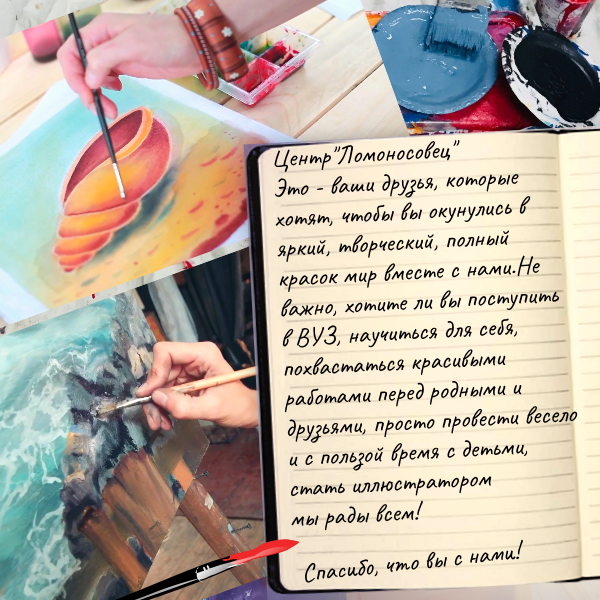 Центр"Ломоносовец"
Это - ваши друзья, которые
хотят, чтобы вы окунулись в
яркий, творческий, полный
красок мир вместе с нами.Не
важно, хотите ли вы поступить
в ВУЗ, научиться для себя,
похвастаться красивыми
работами перед родными и
друзьями, просто провести весело
и с пользой время с детьми,
стать иллюстратором
мы рады всем!
Спасибо, что вы с нами!